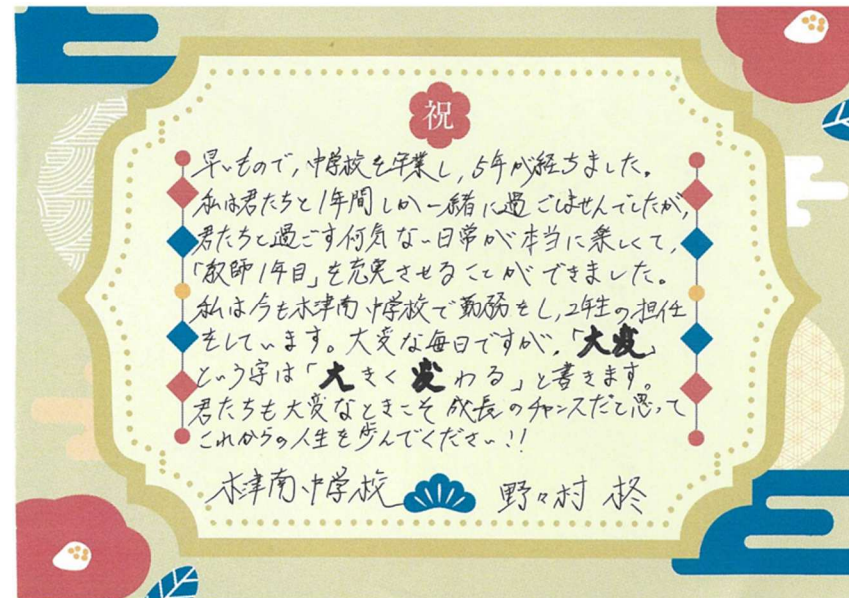 祝
早いもので、中学校を卒業し、5年が経ちました。
私は君たちと1年間しか一緒に過ごしませんでしたが、
君たちと過ごす何気ない日常が本当に楽しくて、
「教師1年目」を充実させることができました。
私は今も木津南中学校で勤務をし、2年生の担任
をしています。大変な毎日ですが、「大変」
という字は「大きく変わる」と書きます。
君たちも大変なときこそ成長のチャンスだと思って
これからの人生を歩んでください!!
木津南中学校 野々村 柊